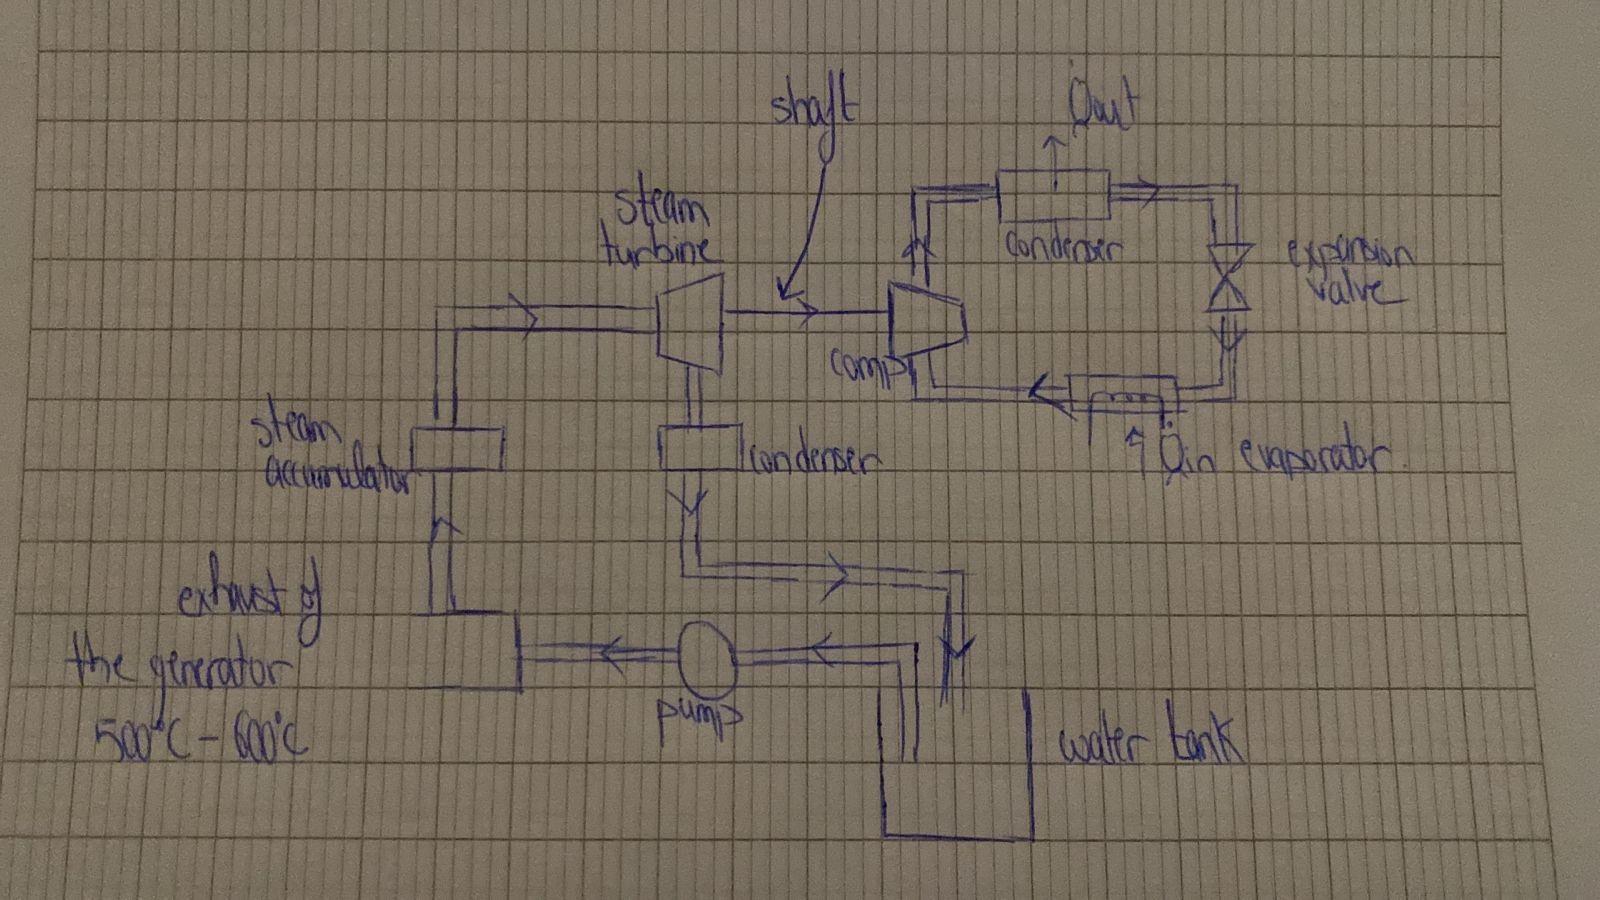 shaft
Q̇out
steam
turbine
condenser
expansion
valve
comp
steam
accumulator
condenser
Q̇in evaporator
exhaust of
the generator
500°C - 600°C
pump
water tank